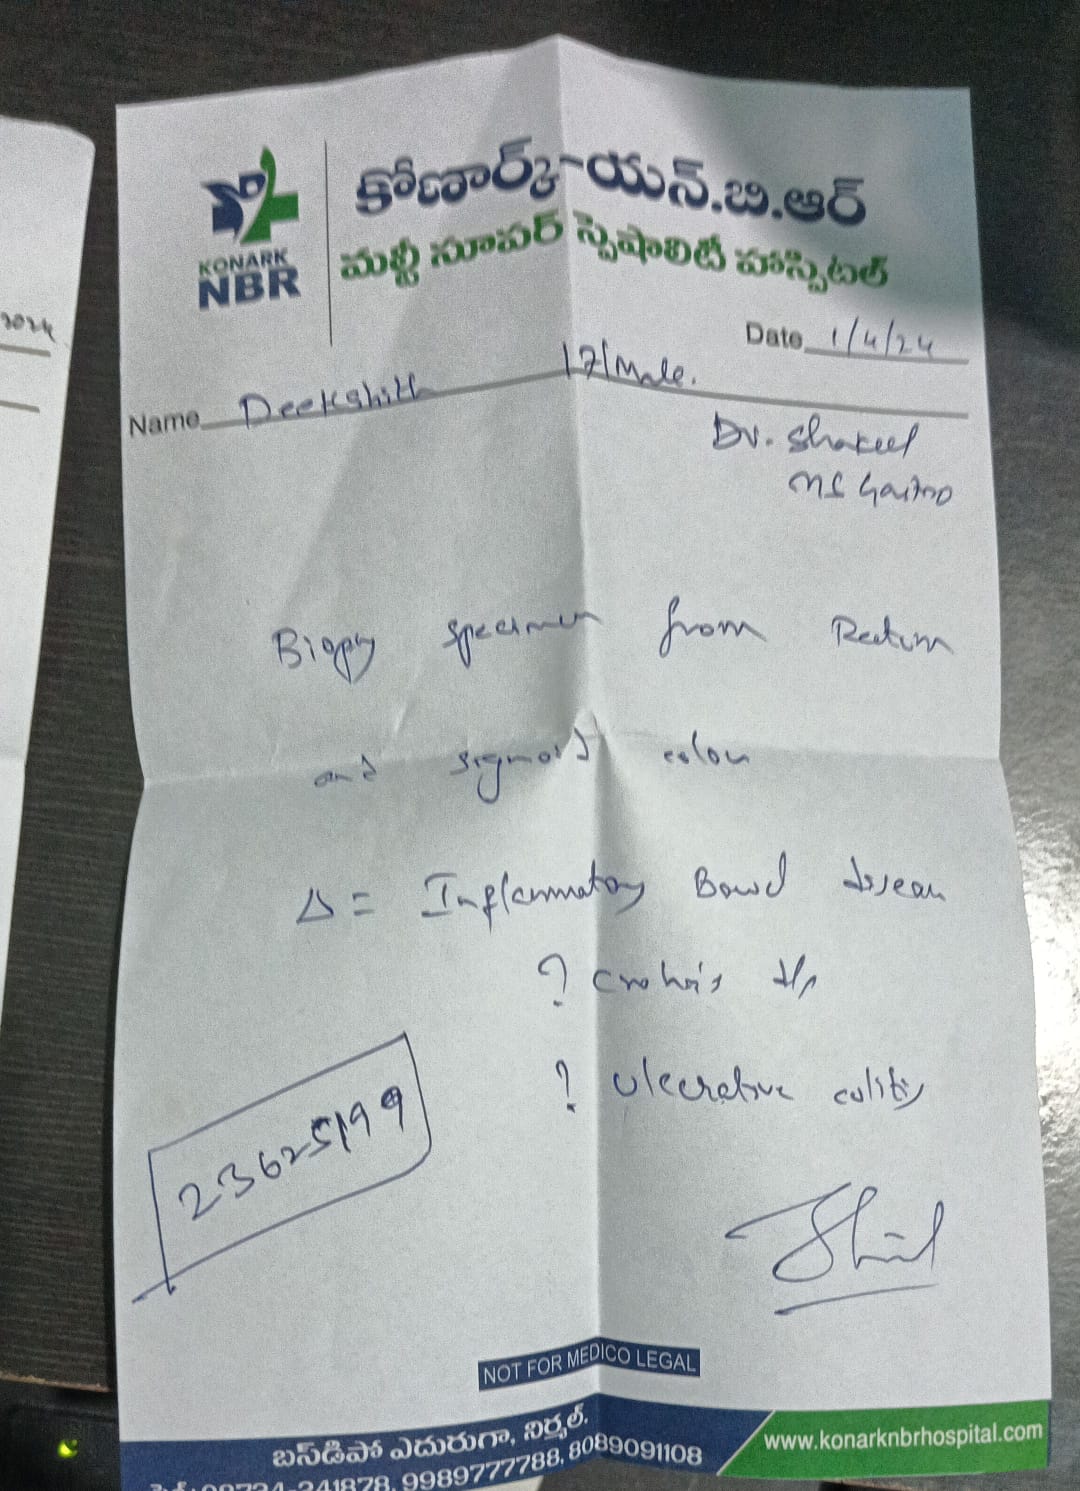 KONARK
NBR
కోణార్క్-యన్.బి.ఆర్
మల్టీ సూపర్ స్పెషాలిటీ హాస్పిటల్
2024
Date 1/4/24
Name Deekshith 17/Male.
Dr. Shakeel
MS Gastro
Biopsy specimen from Rectum
and sigmoid colon
Δ = Inflammatory Bowel disease
? Crohn's d/s
? ulcerative colitis
23625199
NOT FOR MEDICO LEGAL
బస్‌డిపో ఎదురుగా, నిర్మల్.
241878, 9989777788, 8089091108
www.konarknbrhospital.com